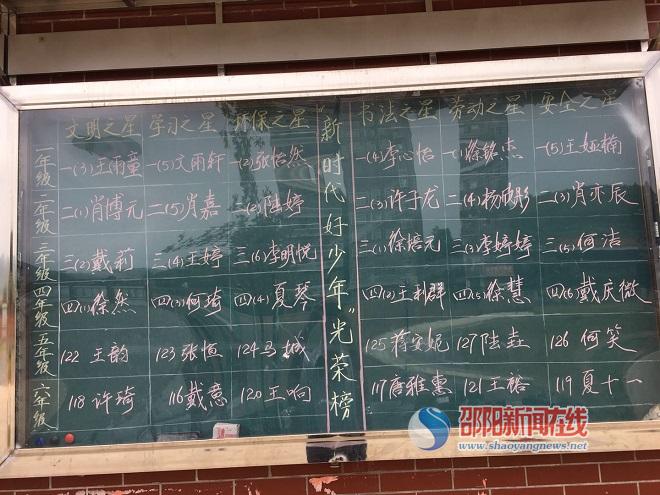 文明之星 学习之星 环保之星 书法之星 劳动之星 安全之星
"新时代好少年"光荣榜
一年级 一(3)王雨童 一(5)文雨轩 一(2)张怡然 一(4)李心怡 一(1)徐铭杰 一(5)王娅楠
二年级 二(1)肖博元 二(5)肖嘉 二(2)陆婷 二(3)许子龙 二(4)杨 二(3)肖亦辰
三年级 三(2)戴莉 三(4)王婷 三(6)李明悦 三(1)徐培元 三(3)李婷婷 三(5)何洁
四年级 四(1)徐然 四(3)何琦 四(4)夏琴 四(2)王利群 四(5)徐慧 四(6)戴庆微
五年级 122 王韵 123 张恒 124 马城 125 蒋安妮 127 陆垚 126 何笑
六年级 118 许琦 116 戴意 120 王响 117 唐雅惠 121 王裕 119 夏十一
邵阳新闻在线
www.shaoyangnews.net